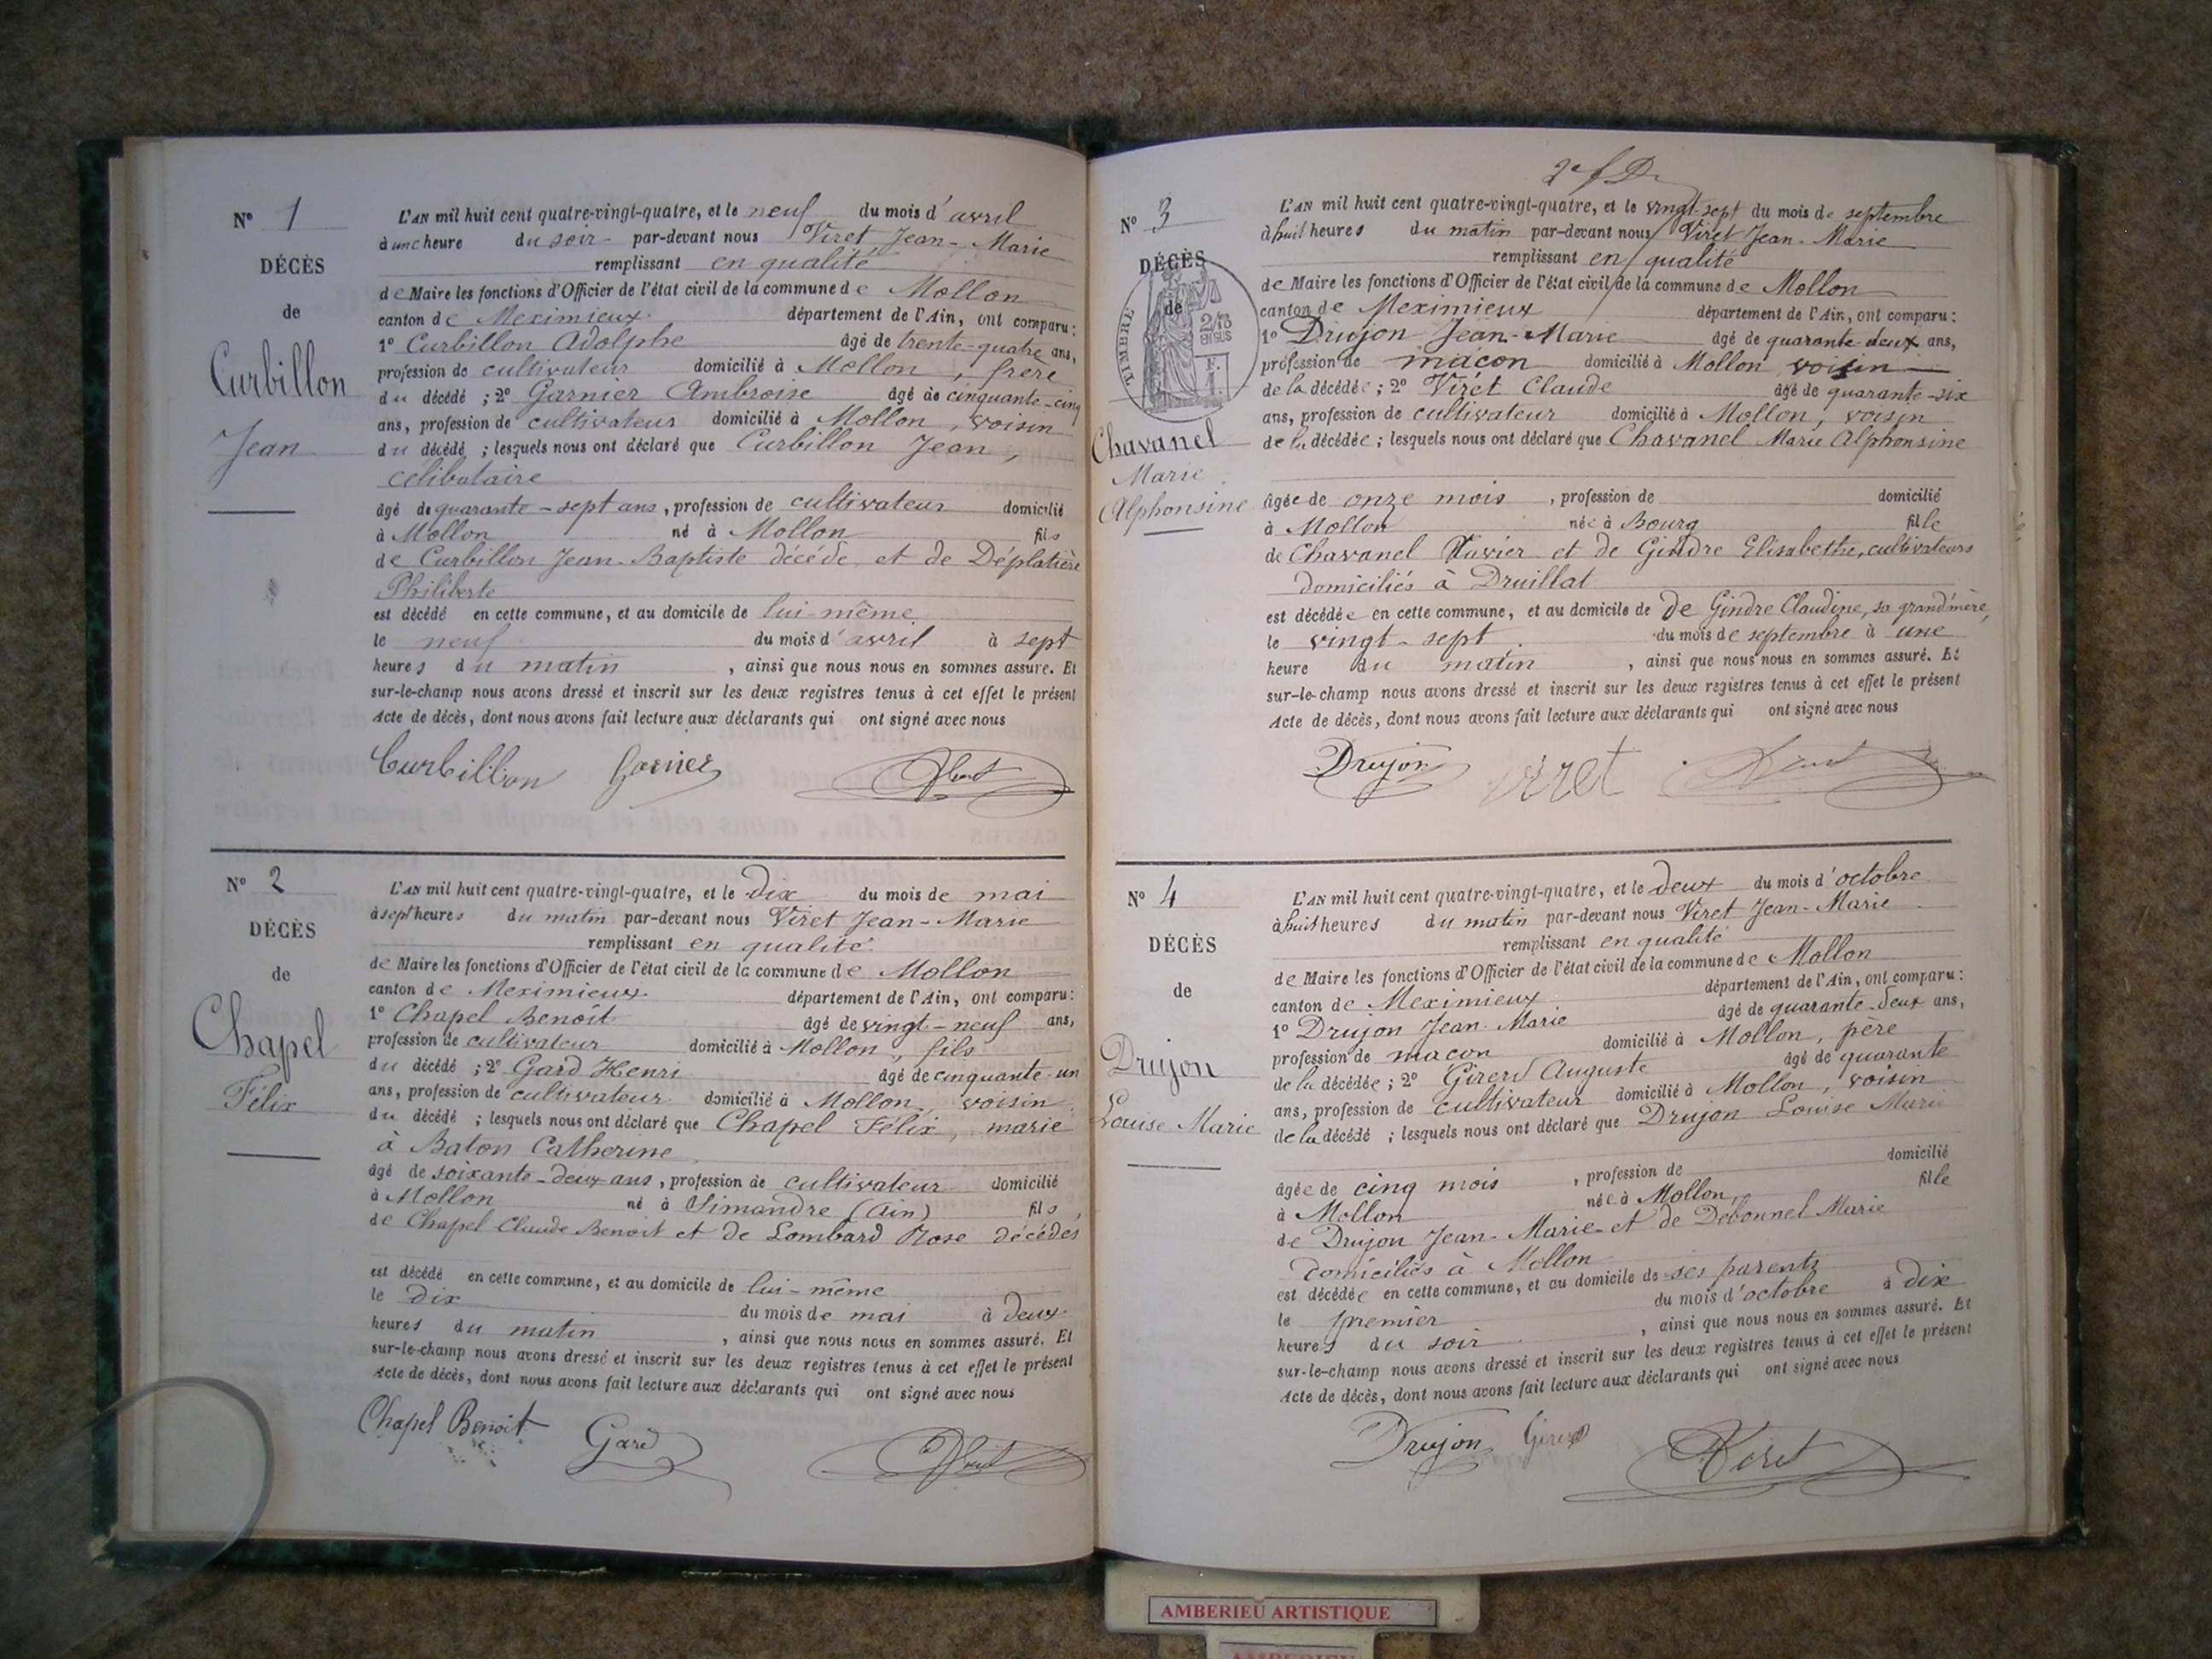 N° 1
DÉCÈS
de
Curbillon
Jean
L'AN mil huit cent quatre-vingt-quatre, et le neuf du mois d'avril
à une heure du soir par-devant nous Viret Jean-Marie
remplissant en qualité
de Maire les fonctions d'Officier de l'état civil de la commune de Mollon
canton de Meximieux département de l'Ain, ont comparu :
1° Curbillon Adolphe âgé de trente-quatre ans,
profession de cultivateur domicilié à Mollon, frère
du décédé ; 2° Garnier Ambroise âgé de cinquante-cinq
ans, profession de cultivateur domicilié à Mollon, voisin
du décédé ; lesquels nous ont déclaré que Curbillon Jean,
célibataire
âgé de quarante-sept ans, profession de cultivateur domicilié
à Mollon né à Mollon fils
de Curbillon Jean-Baptiste décédé, et de Déplatière
Philiberte
est décédé en cette commune, et au domicile de lui-même
le neuf du mois d'avril à sept
heures du matin, ainsi que nous nous en sommes assuré. Et
sur-le-champ nous avons dressé et inscrit sur les deux registres tenus à cet effet le présent
Acte de décès, dont nous avons fait lecture aux déclarants qui ont signé avec nous
Curbillon Garnier Viret
N° 2
DÉCÈS
de
Chapel
Félix
L'AN mil huit cent quatre-vingt-quatre, et le dix du mois de mai
à sept heures du matin par-devant nous Viret Jean-Marie
remplissant en qualité
de Maire les fonctions d'Officier de l'état civil de la commune de Mollon
canton de Meximieux département de l'Ain, ont comparu :
1° Chapel Benoit âgé de vingt-neuf ans,
profession de cultivateur domicilié à Mollon, fils
du décédé ; 2° Gard Henri âgé de cinquante-un
ans, profession de cultivateur domicilié à Mollon, voisin
du décédé ; lesquels nous ont déclaré que Chapel Félix, marié
à Baton Catherine
âgé de soixante-deux ans, profession de cultivateur domicilié
à Mollon né à Simandre (Ain) fils
de Chapel Claude Benoit et de Lombard Rose décédés
est décédé en cette commune, et au domicile de lui-même
le dix du mois de mai à deux
heures du matin, ainsi que nous nous en sommes assuré. Et
sur-le-champ nous avons dressé et inscrit sur les deux registres tenus à cet effet le présent
Acte de décès, dont nous avons fait lecture aux déclarants qui ont signé avec nous
Chapel Benoit Gard Viret
2e f
N° 3
DÉCÈS
de
TIMBRE
2/10
EN SUS
F.
Chavanel
Marie
Alphonsine
L'AN mil huit cent quatre-vingt-quatre, et le vingt-sept du mois de septembre
à huit heures du matin par-devant nous Viret Jean-Marie
remplissant en qualité
de Maire les fonctions d'Officier de l'état civil de la commune de Mollon
canton de Meximieux département de l'Ain, ont comparu :
1° Drujon Jean-Marie âgé de quarante-deux ans,
profession de maçon domicilié à Mollon voisin
de la décédée ; 2° Viret Claude âgé de quarante-six
ans, profession de cultivateur domicilié à Mollon, voisin
de la décédée ; lesquels nous ont déclaré que Chavanel Marie Alphonsine
âgée de onze mois, profession de domicilié
à Mollon née à Bourg fille
de Chavanel Xavier et de Gindre Elisabethe, cultivateurs
domiciliés à Druillat
est décédée en cette commune, et au domicile de de Gindre Claudine, sa grand'mère,
le vingt-sept du mois de septembre à une
heure du matin, ainsi que nous nous en sommes assuré. Et
sur-le-champ nous avons dressé et inscrit sur les deux registres tenus à cet effet le présent
Acte de décès, dont nous avons fait lecture aux déclarants qui ont signé avec nous
Drujon Viret Viret
N° 4
DÉCÈS
de
Drujon
Louise Marie
L'AN mil huit cent quatre-vingt-quatre, et le deux du mois d'octobre
à huit heures du matin par-devant nous Viret Jean-Marie
remplissant en qualité
de Maire les fonctions d'Officier de l'état civil de la commune de Mollon
canton de Meximieux département de l'Ain, ont comparu :
1° Drujon Jean-Marie âgé de quarante-deux ans,
profession de maçon domicilié à Mollon, père
de la décédée ; 2° Girerd Auguste âgé de quarante
ans, profession de cultivateur domicilié à Mollon, voisin
de la décédé ; lesquels nous ont déclaré que Drujon Louise Marie
âgée de cinq mois, profession de domicilié
à Mollon née à Mollon, fille
de Drujon Jean-Marie et de Debonnel Marie
domiciliés à Mollon
est décédée en cette commune, et au domicile de ses parents
le premier du mois d'octobre à dix
heures du soir, ainsi que nous nous en sommes assuré. Et
sur-le-champ nous avons dressé et inscrit sur les deux registres tenus à cet effet le présent
Acte de décès, dont nous avons fait lecture aux déclarants qui ont signé avec nous
Drujon Girerd Viret
AMBERIEU ARTISTIQUE
AMBERIEU